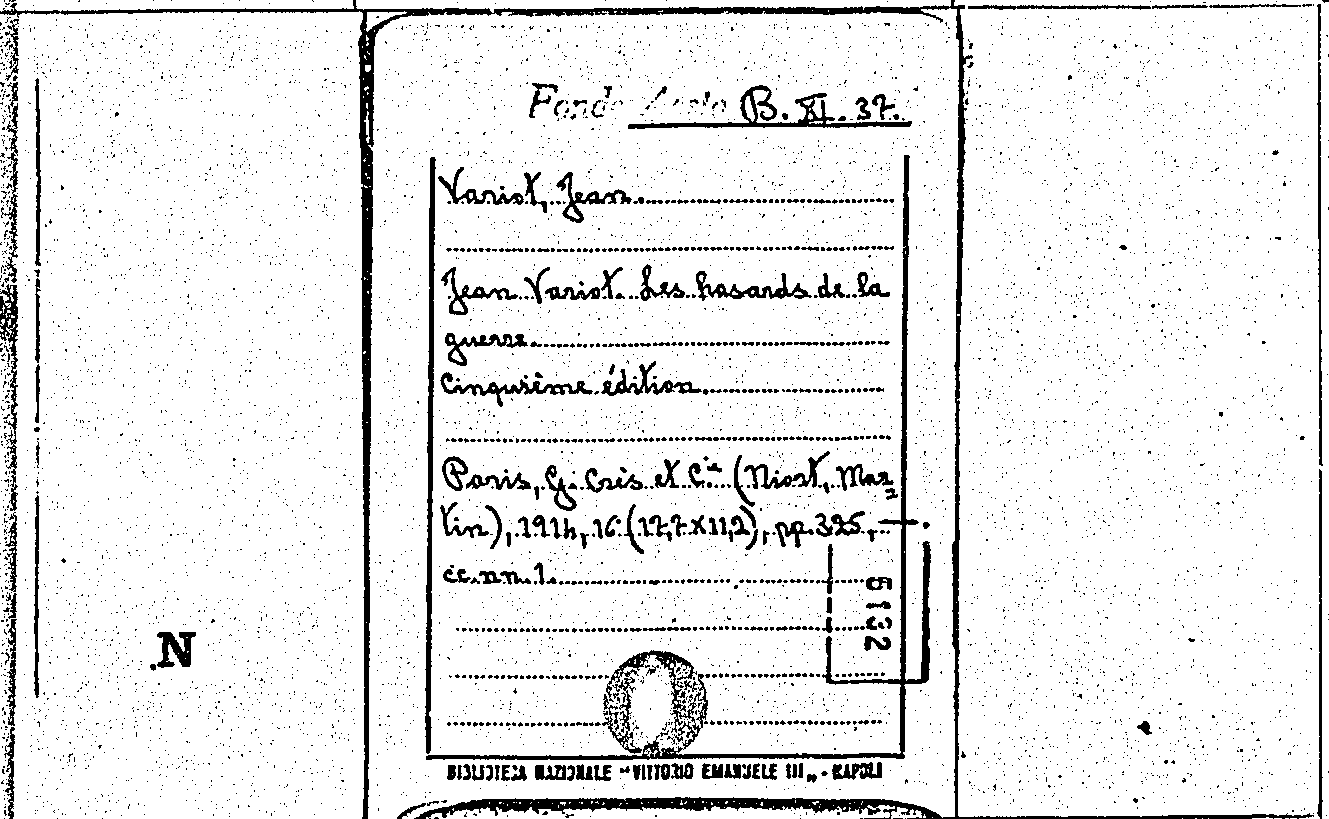 Fondo Aosta B. XI. 37.
Variot, Jean.
Jean Variot. Les hasards de la
guerre.
Cinquième édition.
Paris, G. Crès et C.ie (Niort, Mar=
tin), 1914, 16 (17,7 x 11,2), pp. 325, —.
cc. nn. 1.
5132
N
BIBLIOTECA NAZIONALE "VITTORIO EMANUELE III" - NAPOLI